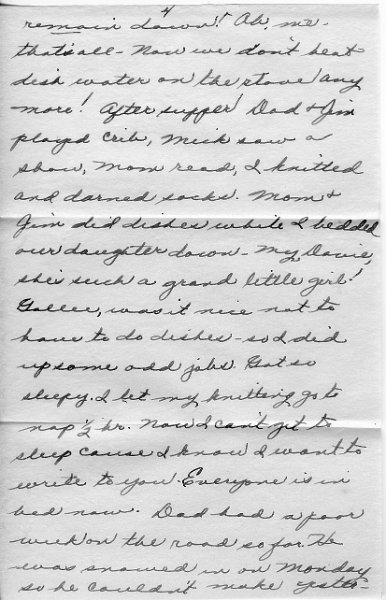 4
remain down! Ah, me -
that's all - Now we don't heat
dish water on the stove any
more! After supper Dad & Jim
played crib, Mick saw a
show, Mom read, I knitted
and darned socks. Mom &
Jim did dishes while I bedded
our daughter down - My Davie,
she's such a grand little girl!
Gollee, was it nice not to
have to do dishes - so I did
up some odd jobs. Got so
sleepy. I let my knitting go to
nap ½ hr. Now I can't get to
sleep cause I know I want to
write to you. Everyone is in
bed now. Dad had a poor
week on the road so far. He
was snowed in on Monday
so he couldn't make yester-